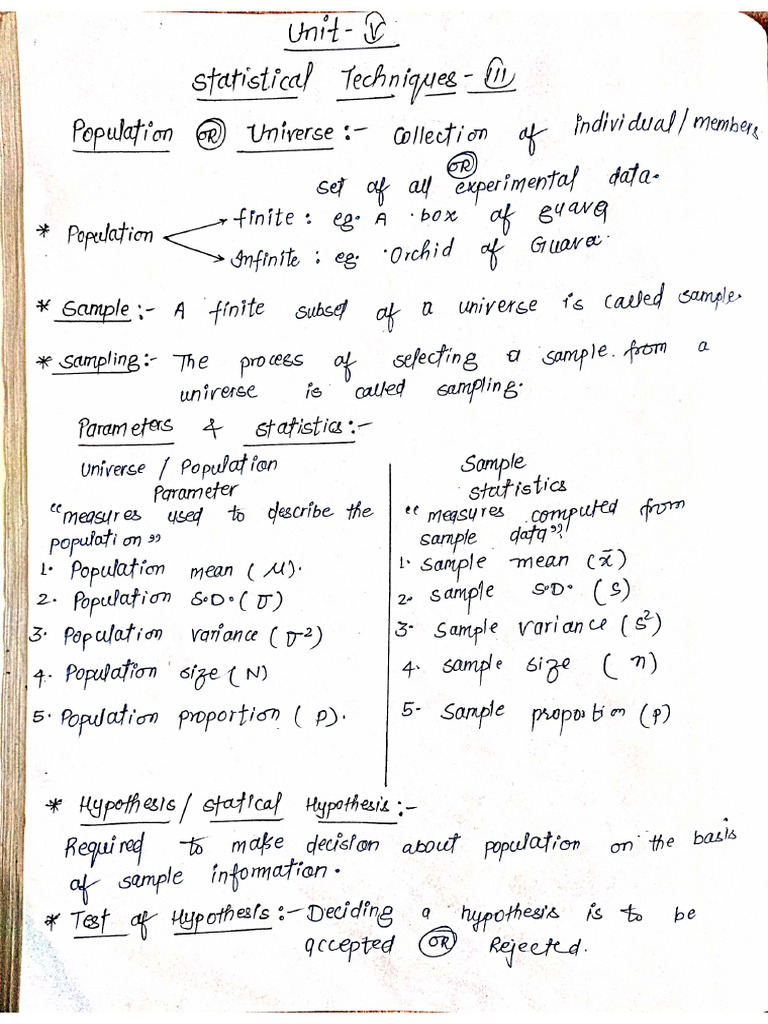 Unit - V
Statistical Techniques - III
Population OR Universe :- Collection of individual/members
OR
set of all experimental data.
* Population
finite : eg. A box of guava
Infinite : eg. Orchid of Guava
* Sample :- A finite subset of a universe is called sample.
* Sampling :- The process of selecting a sample from a
universe is called sampling.
Parameters & statistics :-
Universe / Population
Parameter
"measures used to describe the
population"
1. Population mean (μ).
2. Population S.D. (σ)
3. Population variance (σ²)
4. Population size (N)
5. Population proportion (P).
Sample
statistics
"measures computed from
sample data".
1. Sample mean (x̄)
2. Sample S.D. (S)
3. Sample variance (s²)
4. Sample size (n)
5. Sample proportion (p)
* Hypothesis / statical Hypothesis :-
Required to make decision about population on the basis
of sample information.
* Test of Hypothesis :- Deciding a hypothesis is to be
accepted OR Rejected.